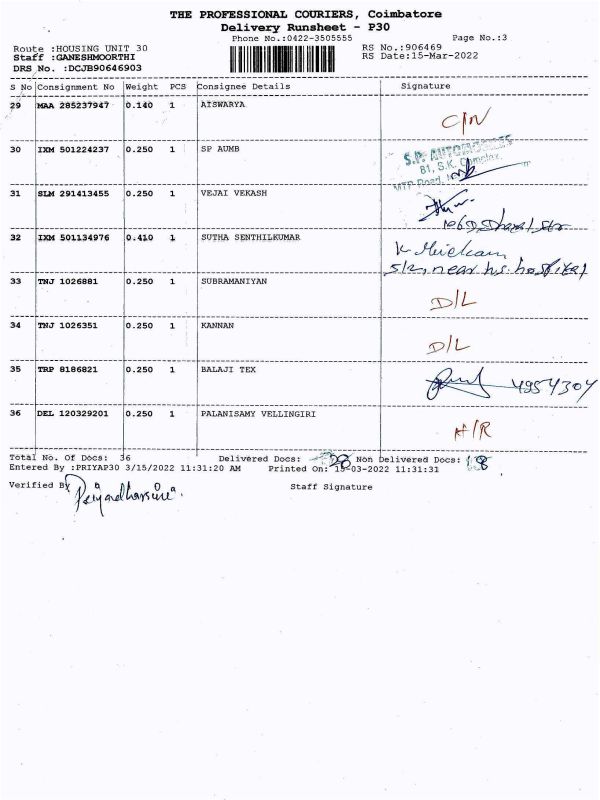 THE PROFESSIONAL COURIERS, Coimbatore
Delivery Runsheet - P30
Phone No.:0422-3505555 Page No.:3
Route :HOUSING UNIT 30 RS No.:906469
Staff :GANESHMOORTHI RS Date:15-Mar-2022
DRS No. :DCJB90646903
S No Consignment No Weight PCS Consignee Details Signature
29 MAA 285237947 0.140 1 AISWARYA
C/N
30 IXM 501224237 0.250 1 SP AUMB
S.P. AUTOMOBILES
81, S.K. Complex,
MTP Road,
31 SLM 291413455 0.250 1 VEJAI VEKASH
32 IXM 501134976 0.410 1 SUTHA SENTHILKUMAR
near hospital
33 TNJ 1026881 0.250 1 SUBRAMANIYAN
D/L
34 TNJ 1026351 0.250 1 KANNAN
D/L
35 TRP 8186821 0.250 1 BALAJI TEX
4954304
36 DEL 120329201 0.250 1 PALANISAMY VELLINGIRI
H/R
Total No. Of Docs: 36 Delivered Docs: 28 Non Delivered Docs: 8
Entered By :PRIYAP30 3/15/2022 11:31:20 AM Printed On: 15-03-2022 11:31:31
Verified By Priyadharsini. Staff Signature